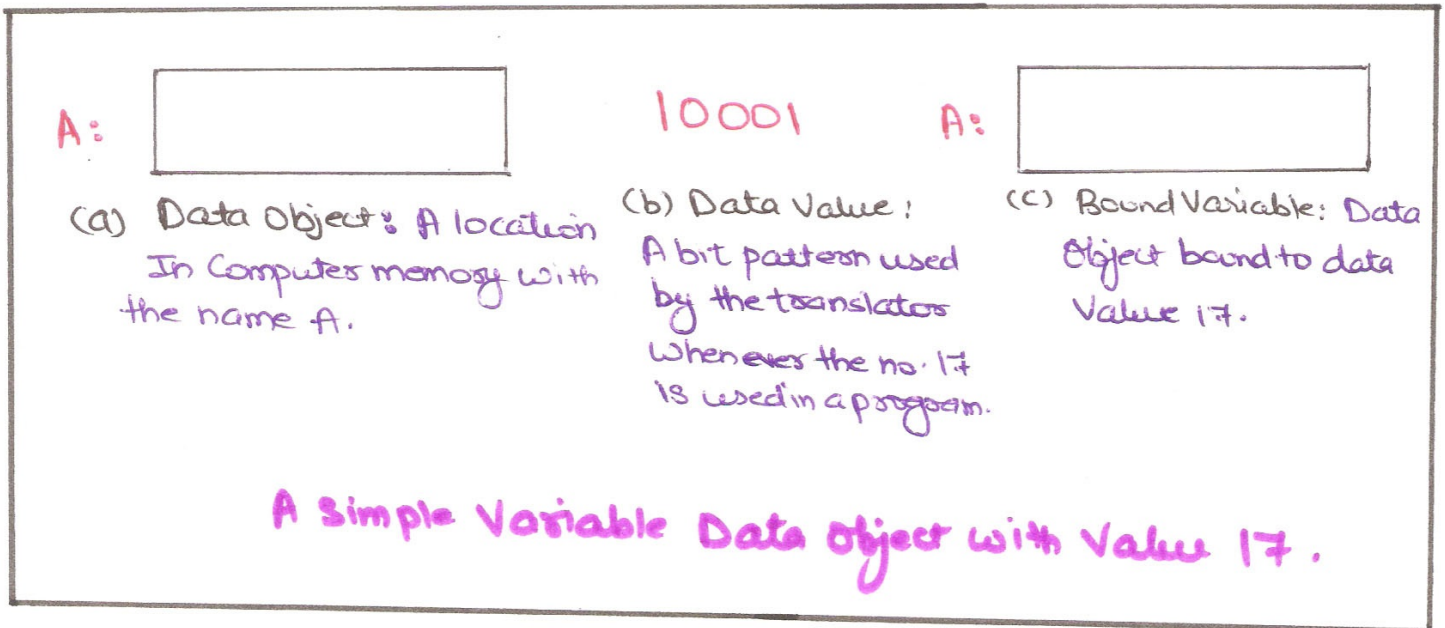 A:
10001
A:
(a) Data Object: A location
In Computer memory with
the name A.
(b) Data Value:
A bit pattern used
by the translator
whenever the no. 17
is used in a program.
(c) Bound Variable: Data
Object bound to data
Value 17.
A Simple Variable Data Object with Value 17.